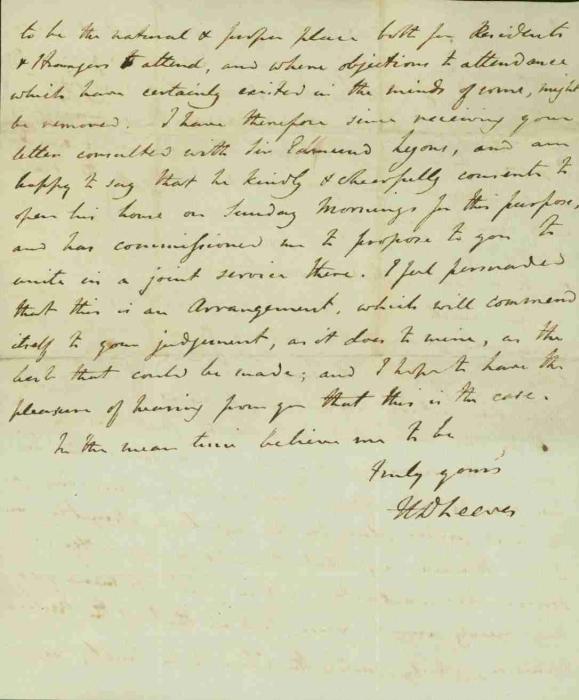 to be the natural & proper place both for Residents
& Strangers to attend, and where objections to attendance
which have certainly existed in the minds of some, might
be removed. I have therefore since receiving your
letter consulted with Sir Edmund Lyons, and am
happy to say that he kindly & cheerfully consents to
open his house on Sunday Mornings for this purpose,
and has commissioned me to propose to you to
unite in a joint service there. I feel persuaded
that this is an Arrangement, which will commend
itself to your judgement, as it does to mine, as the
best that could be made; and I hope to have the
pleasure of hearing from you that this is the case.
In the mean time believe me to be
truly yours
H D Leeves